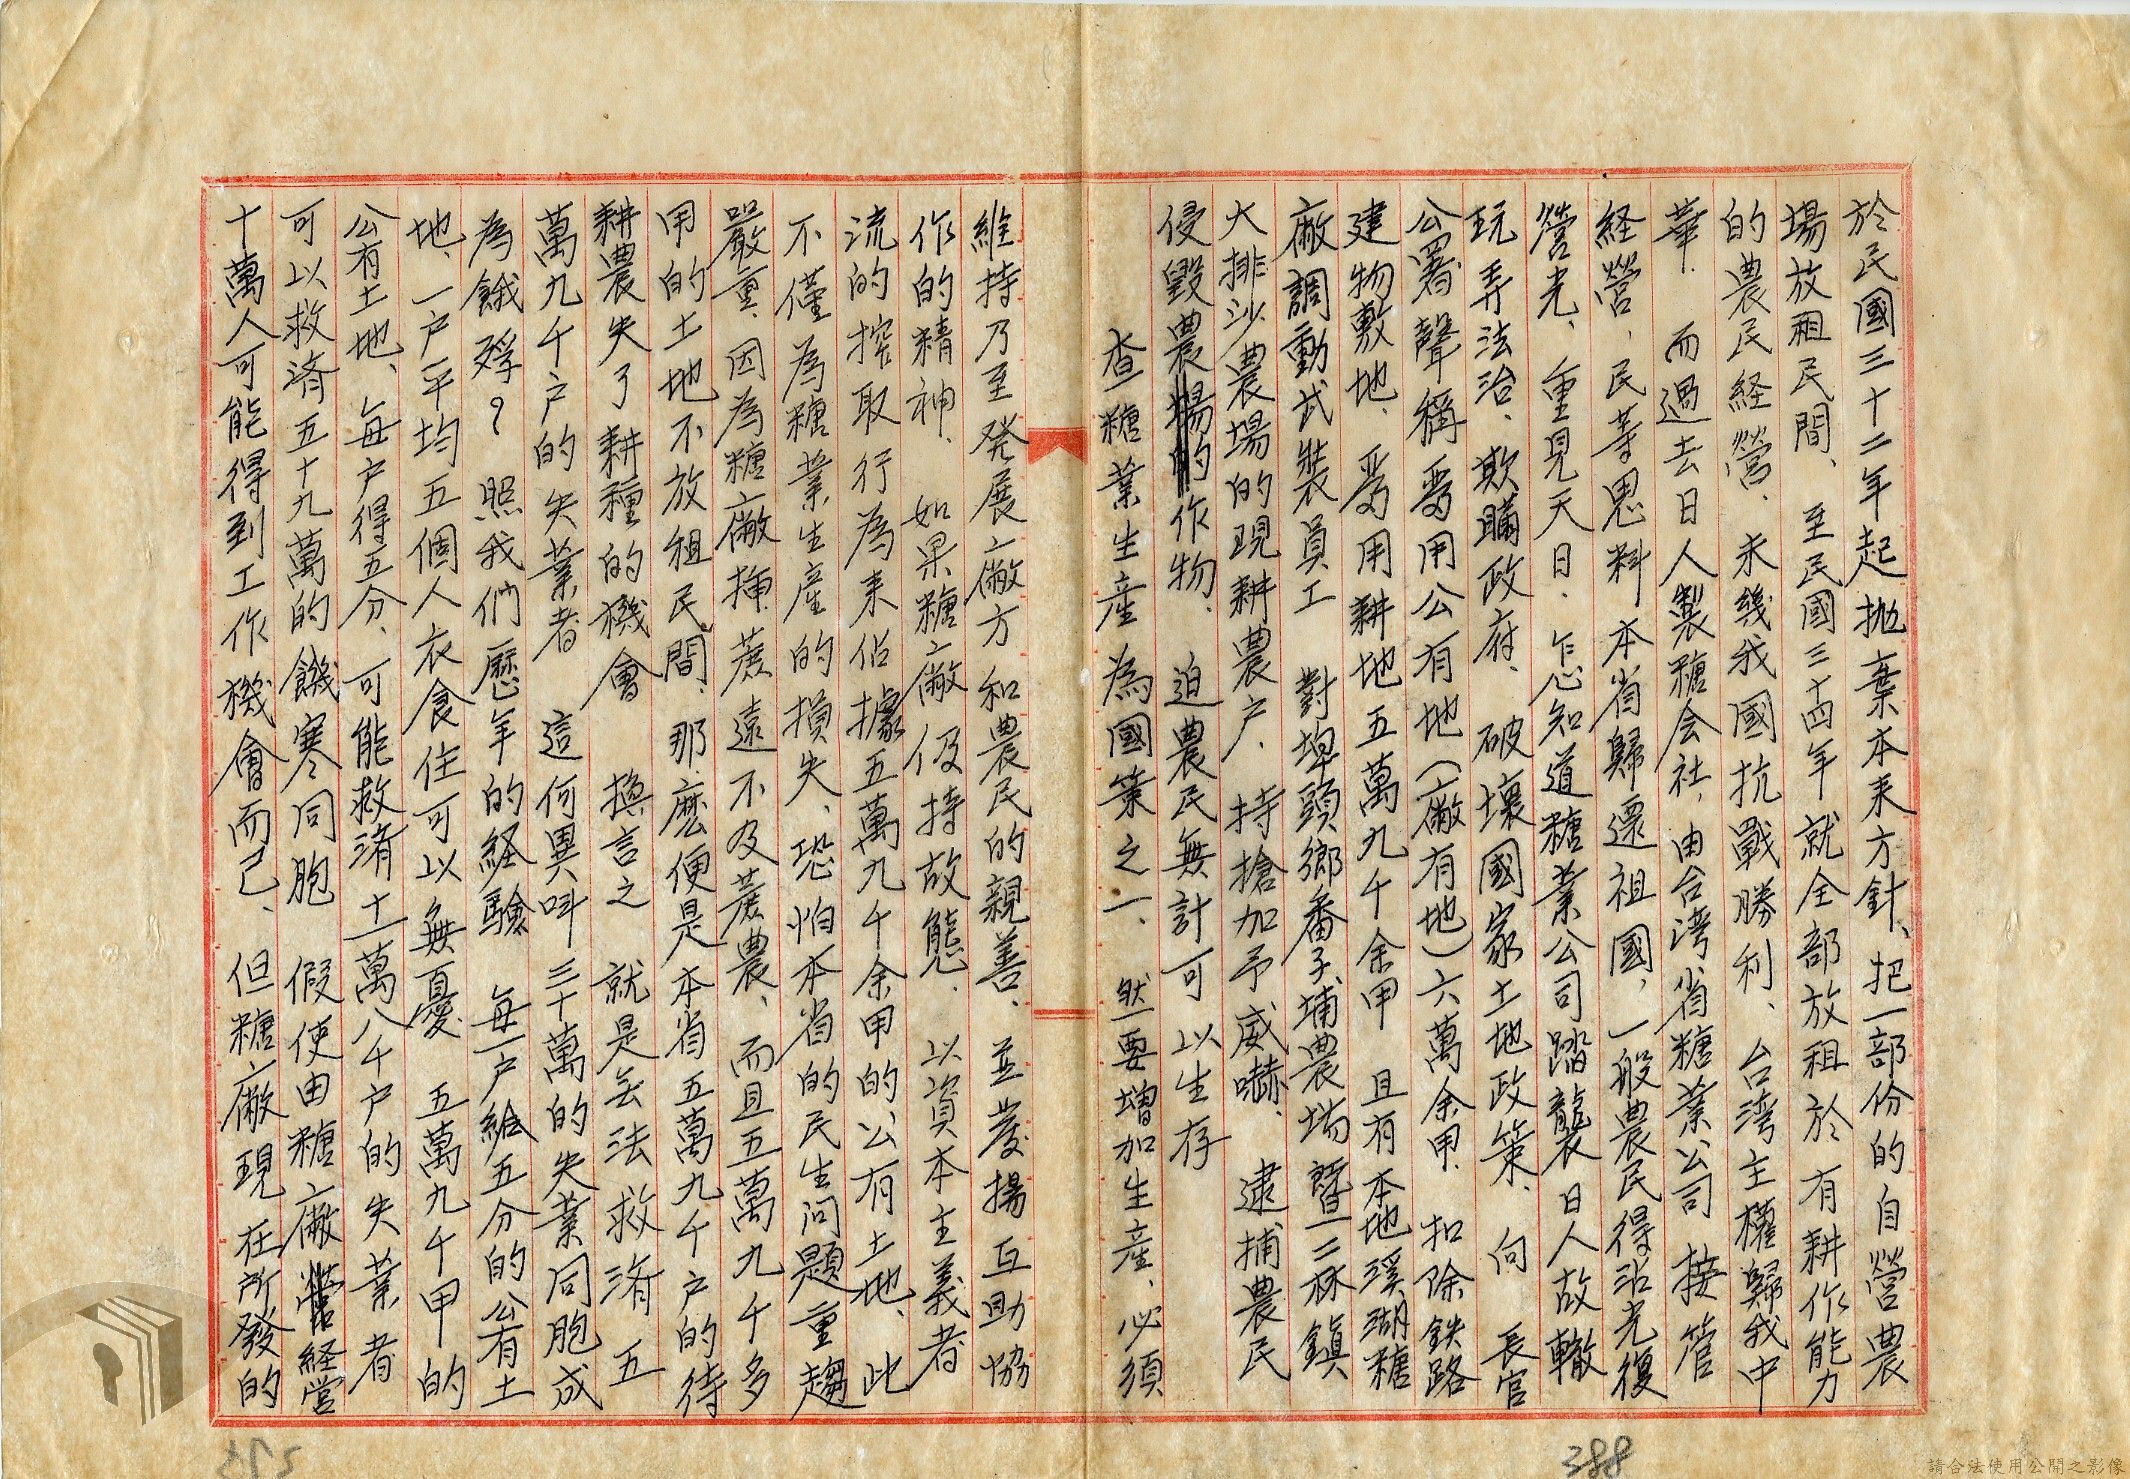 於民國三十二年起抛棄本来方針、把一部份的自營農
場放租民間、至民國三十四年就全部放租於有耕作能力
的農民経營、未幾我國抗戰勝利、台湾主權歸我中
華、而過去日人製糖会社、由台湾省糖業公司接管
経營、民等思料本省歸還祖國、一般農民得沾光復
營光、重見天日、乍知道糖業公司踏襲日人故轍
玩弄法治、欺瞞政府、破壞國家土地政策、向長官
公署聲稱要用公有地(廠有地)六萬余甲、扣除鉄路
建物敷地、要用耕地五萬九千余甲且有本地溪湖糖
廠調動武裝員工對埤頭鄉番子埔農場暨二林鎮
大排沙農場的現耕農户、持搶加予威嚇、逮捕農民
侵毀農作物、迫農民無計可以生存
查糖業生産為國策之一、然要增加生産、必須
維持乃至発展廠方和農民的親善、並發揚互助協
作的精神、如果糖廠仍持故態、以資本主義者
流的搾取行為来佔據五萬九千余甲的公有土地、此
不僅為糖業生産的損失、恐怕本省的民生问題重趨
嚴重、因為糖廠揷蔗遠不及蔗農、而且五萬九千多
甲的土地不放租民間、那麽便是本省五萬九千户的待
耕農失了耕種的機會換言之就是無法救済五
萬九千户的失業者這何異叫三十萬的失業同胞成
為餓殍?照我們歴年的経驗每一户給五分的公有土
地、一户平均五個人衣食住可以無憂五萬九千甲的
公有土地、每户得五分、可能救濟十一萬八千户的失業者
可以救濟五十九萬的饑寒同胞假使由糖廠経営
十萬人可能得到工作機會而已、但糖廠現在所發的
388
請合法使用公開之影像